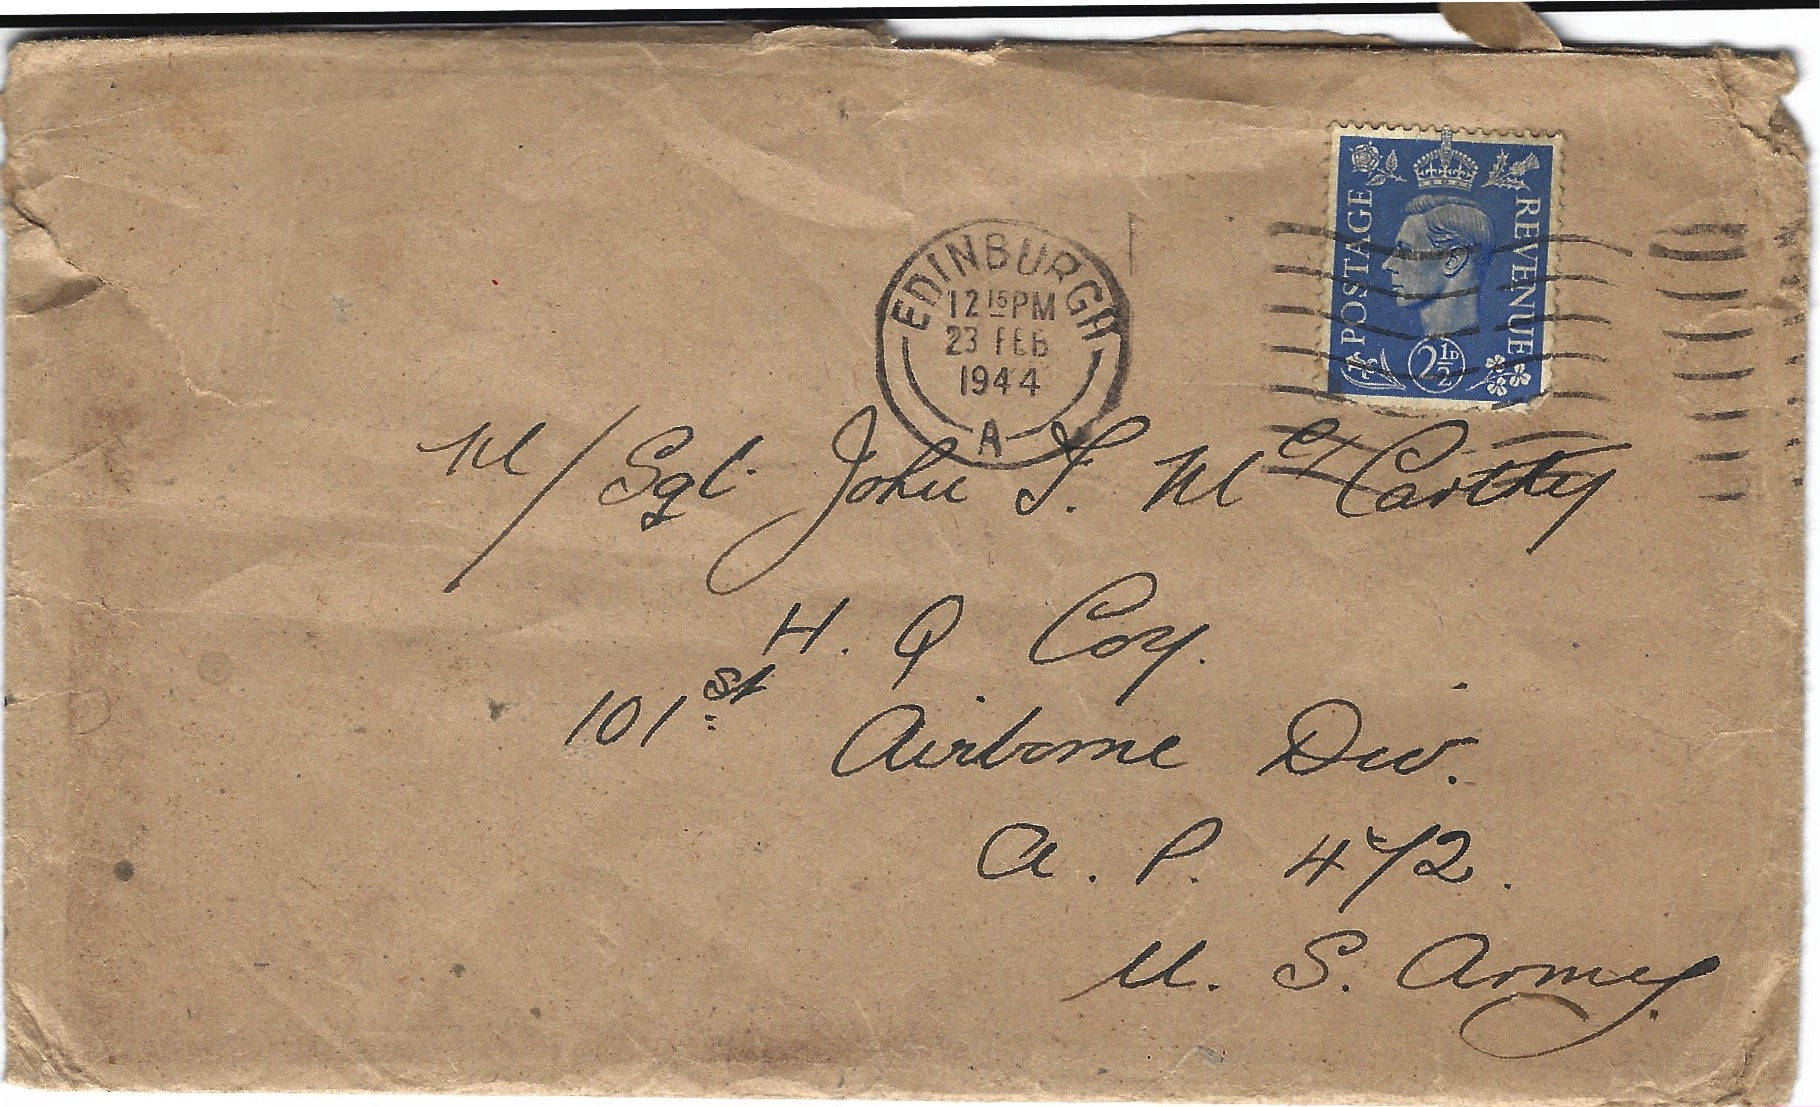 EDINBURGH
12 15 PM
23 FEB
1944
A
POSTAGE
REVENUE
2½D
M/Sgt. John F. McCarthy
H. Q Coy.
101st Airborne Div.
A. P. 472.
U. S. Army.